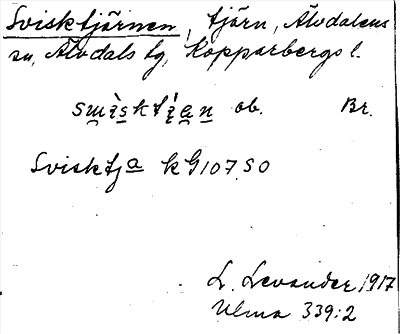 Svisktjärnen, tjärn, Älvdalens
sn, Älvdals tg, Kopparbergs l.
ob. Br.
Svisktja k G107 SO
L. Levander 1917
Ulma 339:2